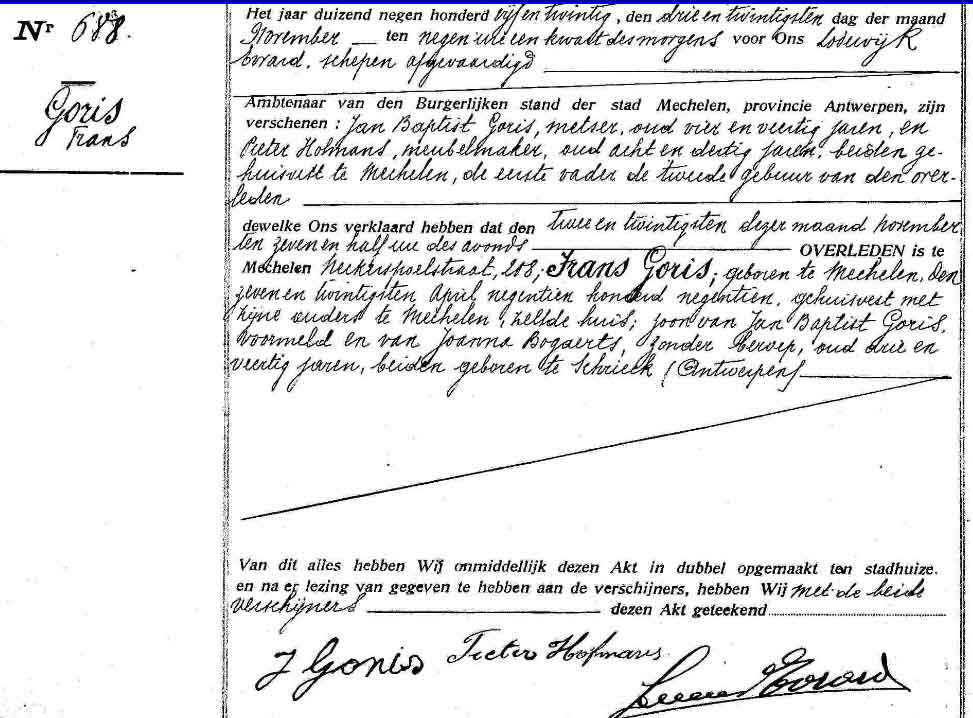 Nr 688.
Goris
Frans
Het jaar duizend negen honderd vijf en twintig, den drie en twintigsten dag der maand
November ten negen ure een kwart des morgens voor Ons Lodewijk
Evrard, schepen afgevaardigd
Ambtenaar van den Burgerlijken stand der stad Mechelen, provincie Antwerpen, zijn
verschenen : Jan Baptist Goris, metser, oud vier en veertig jaren, en
Pieter Hofmans, meubelmaker, oud acht en dertig jaren, beiden ge-
huisvest te Mechelen, de eerste vader de tweede gebuur van den over-
leden
dewelke Ons verklaard hebben dat den twee en twintigsten dezer maand november
ten zeven en half ure des avonds OVERLEDEN is te
Mechelen Neckerspoelstraat, 208, Frans Goris, geboren te Mechelen, den
zeven en twintigsten April negentien honderd negentien, gehuisvest met
zijne ouders te Mechelen, zelfde huis; zoon van Jan Baptist Goris,
voormeld en van Joanna Bogaerts, zonder beroep, oud drie en
veertig jaren, beiden geboren te Schrieck (Antwerpen)
Van dit alles hebben Wij onmiddellijk dezen Akt in dubbel opgemaakt ten stadhuize.
en na er lezing van gegeven te hebben aan de verschijners, hebben Wij met de beide
verschijners dezen Akt geteekend
J Goris Pieter Hofmans
Evrard